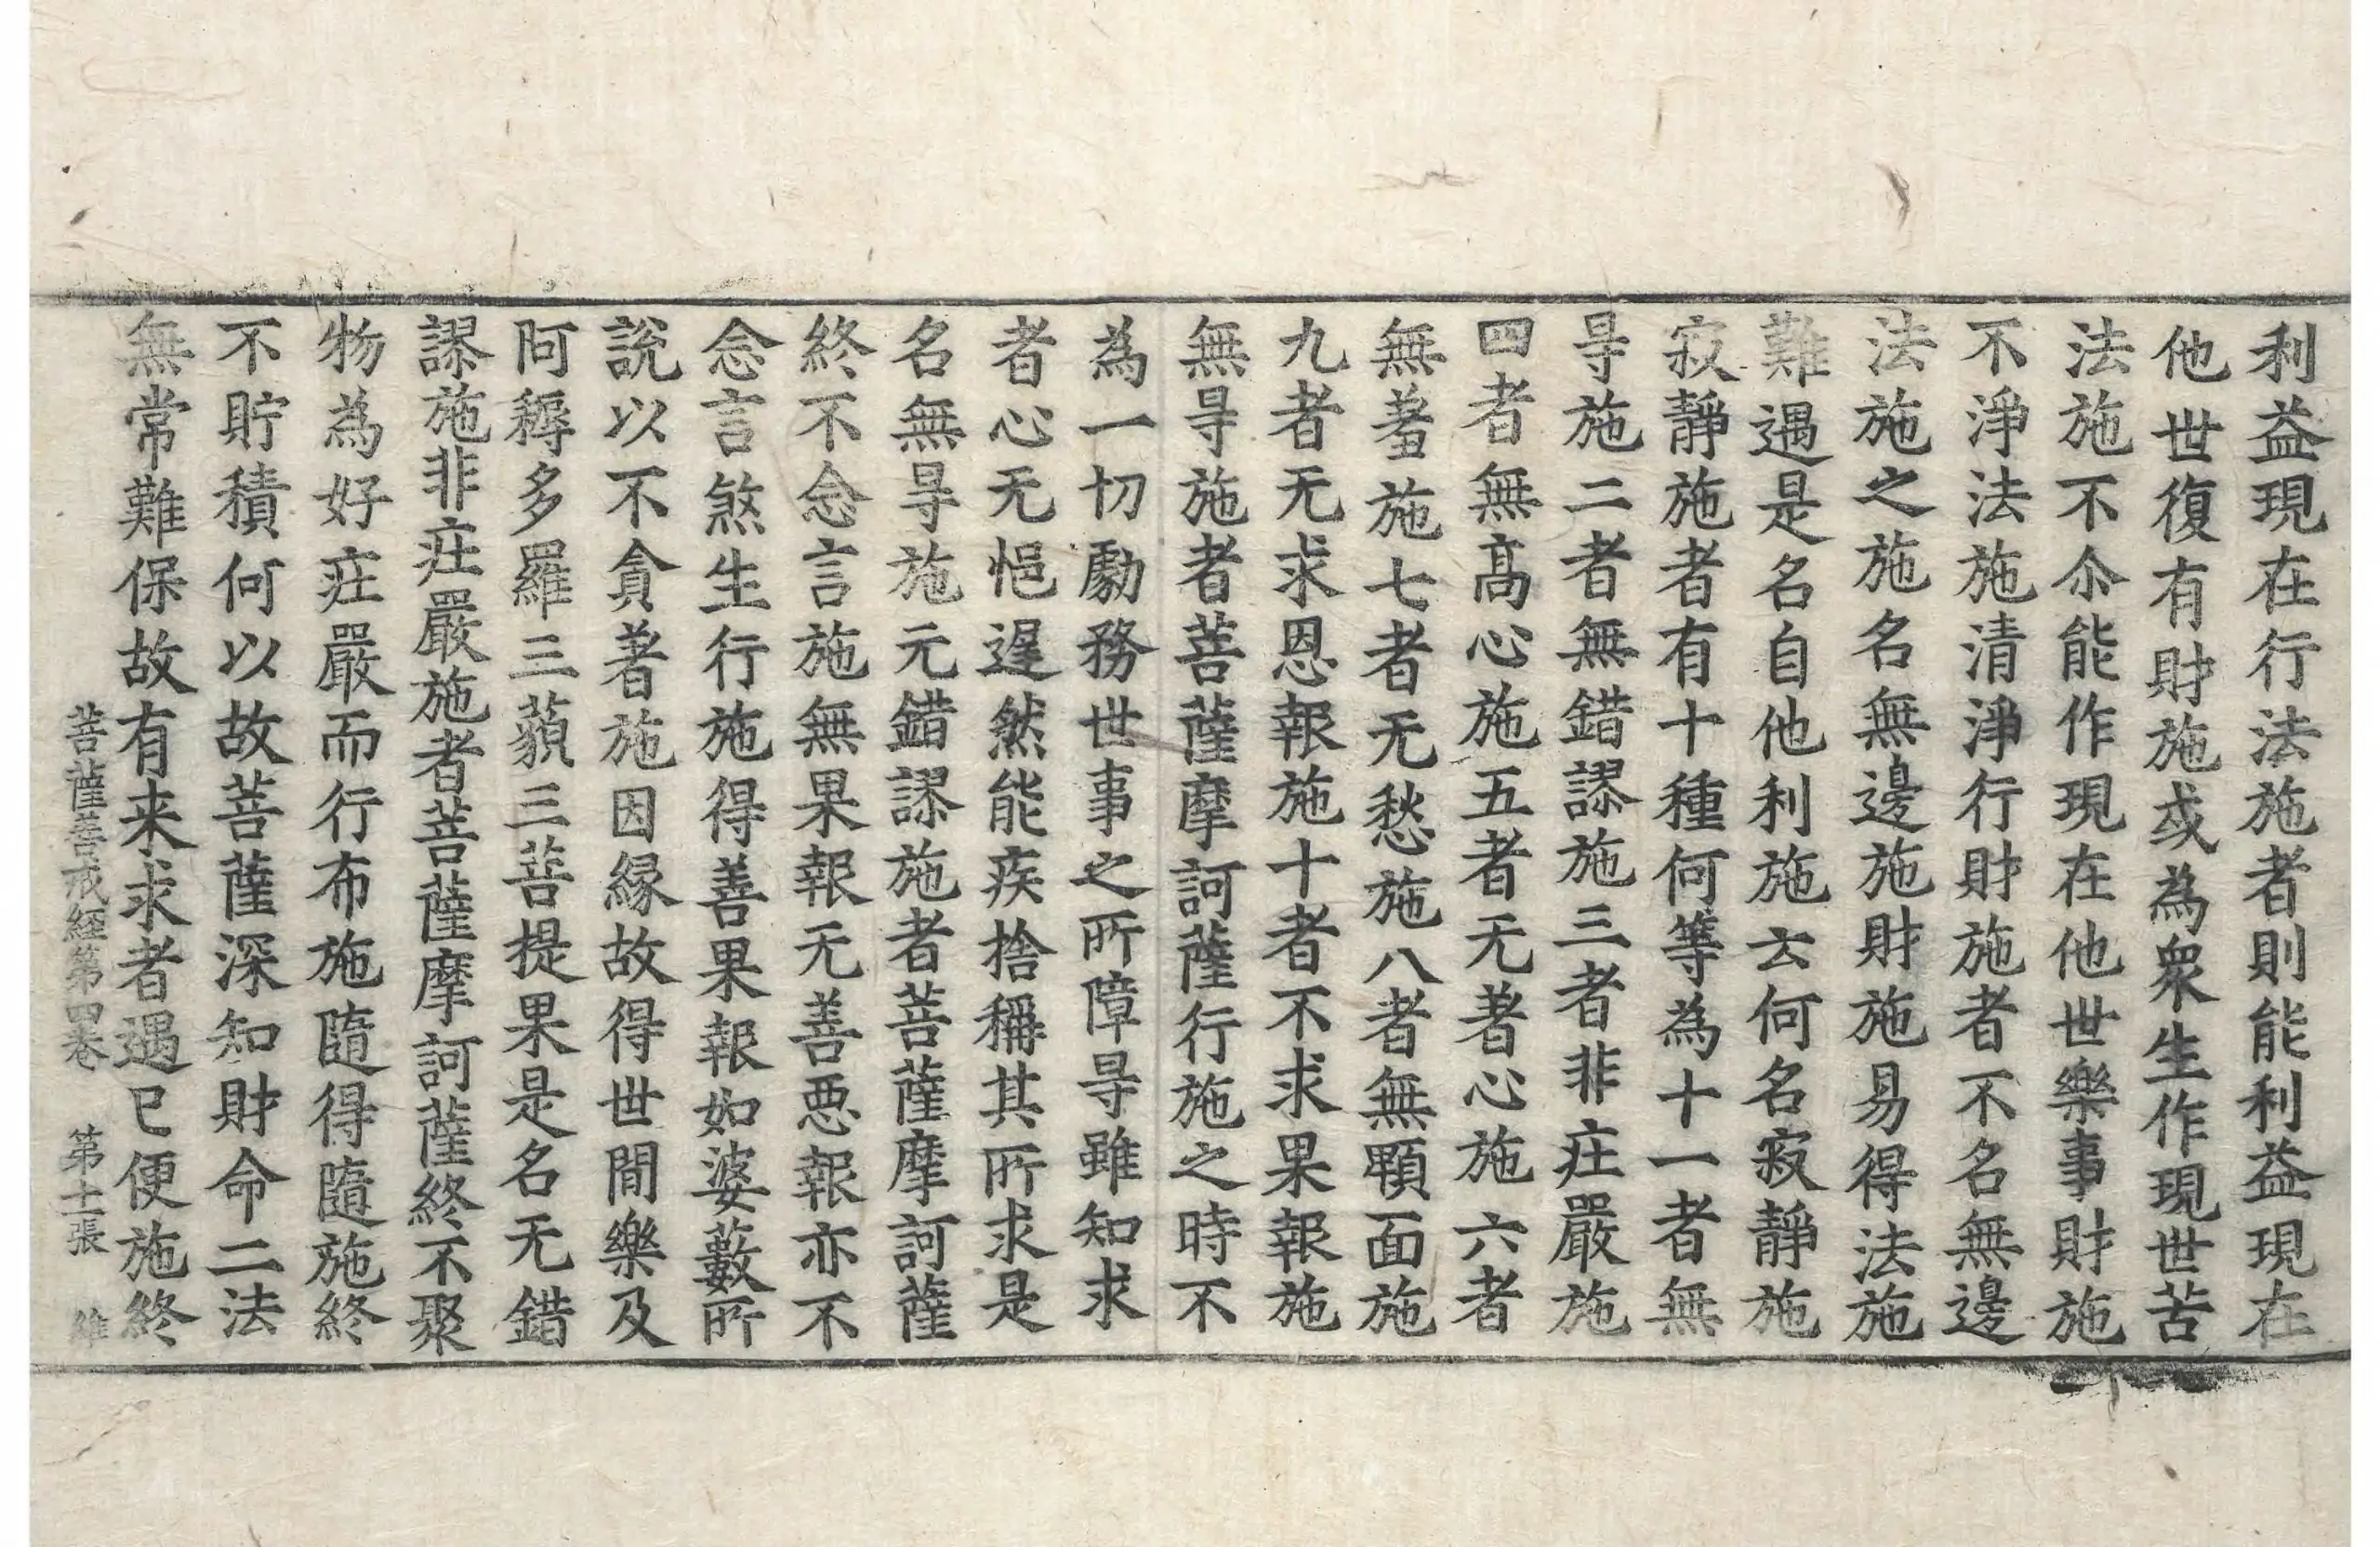 利益現在行法施者則能利益現在
他世復有財施或為衆生作現世苦
法施不尒能作現在他世樂事財施
不淨法施清淨行財施者不名無邊
法施之施名無邊施財施易得法施
難遇是名自他利施云何名寂靜施
寂靜施者有十種何等為十一者無
㝵施二者無錯謬施三者非庄嚴施
四者無髙心施五者无著心施六者
無羞施七者无愁施八者無顋面施
九者无求恩報施十者不求果報施
無㝵施者菩薩摩訶薩行施之時不
為一切勮務世事之所障㝵雖知求
者心无悒遟然能疾捨稱其所求是
名無㝵施无錯謬施者菩薩摩訶薩
終不念言施無果報无善悪報亦不
念言煞生行施得善果報如婆藪所
說以不貪著施因縁故得世間樂及
阿耨多羅三藐三菩提果是名无錯
謬施非庄嚴施者菩薩摩訶薩終不聚
物為好庄嚴而行布施隨得隨施終
不貯積何以故菩薩深知財命二法
無常難保故有来求者遇已便施終
菩薩善戒經第四卷 第十一張 維